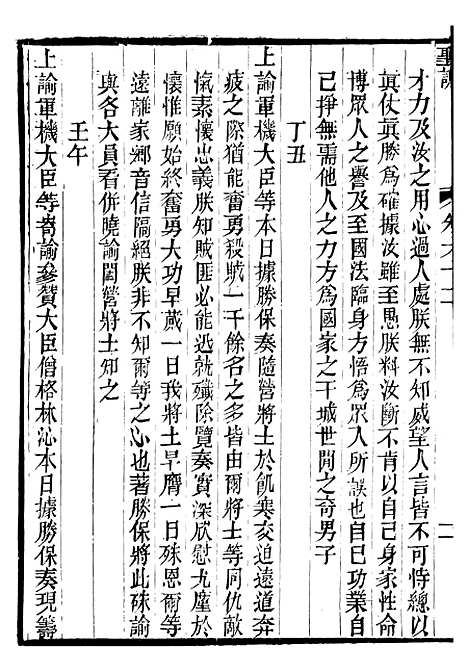 聖訓
才力及汝之用心過人處朕無不知威望人言皆不可恃總以
真仗真勝為確據汝雖至愚朕料汝斷不肯以自己身家性命
博眾人之譽及至國法臨身方悟為眾人所誤也自己功業自
己掙無需他人之力方為國家之干城世間之奇男子
丁丑
上諭軍機大臣等本日據勝保奏隨營將士於飢寒交迫遠道奔
疲之際猶能奮勇殺賊一千餘名之多皆由爾將士等同仇敵
愾素懷忠義朕知賊匪必能迅就殲除覽奏實深欣慰尤廑於
懷惟願始終奮勇大功早蕆一日我將士早膺一日殊恩爾等
遠離家鄉音信隔絕朕非不知爾等之心也著勝保將此硃諭
與各大員看併曉諭闔營將士知之
壬午
上諭軍機大臣等寄諭參贊大臣僧格林沁本日據勝保奏現籌